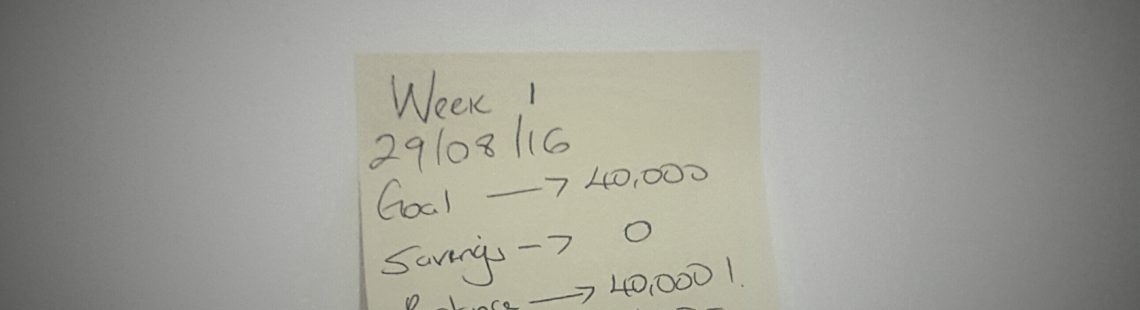 Week 1
29/08/16
Goal → 40,000
Savings → 0
Balance → 40,000!